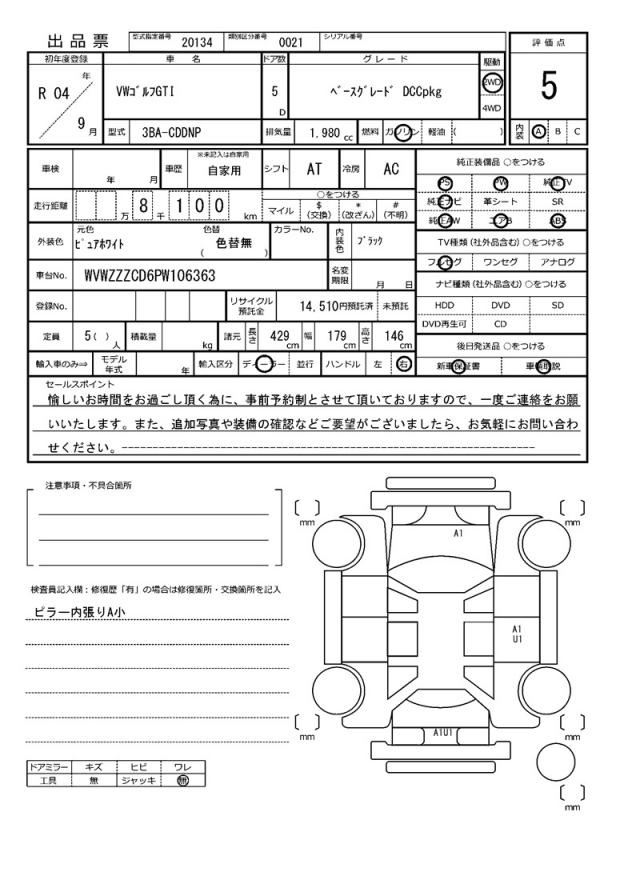 出品票 型式指定番号 20134 類別区分番号 0021 シリアル番号
評価点
5
内装 A B C
初年度登録 車名 ドア数 グレード 駆動
R 04 年 9 月
VWｺﾞﾙﾌGTI 5 D ﾍﾞｰｽｸﾞﾚｰﾄﾞ DCCpkg 2WD
4WD
型式 3BA-CDDNP 排気量 1.980 cc 燃料 ガソリン 軽油 ( )
車検 年 月 車歴 ※未記入は自家用 自家用 シフト AT 冷房 AC
走行距離 8 万 千 1 0 0 km
○をつける
マイル $(交換) *(改ざん) #(不明)
外装色 元色 ﾋﾟｭｱﾎﾜｲﾄ 色替 ( 色替無 ) カラーNo. 内装色 ﾌﾞﾗｯｸ
車台No. WVWZZZCD6PW106363 名変期限 月 日
登録No. リサイクル預託金 14,510円預託済 未預託
定員 5( )人 積載量 kg 諸元 長さ 429 cm 幅 179 cm 高さ 146 cm
輸入車のみ⇒ モデル年式 年 輸入区分 ディーラー 並行 ハンドル 左 右
純正装備品 ○をつける
PS PW 純正TV
純正ナビ 革シート SR
純正AW エアB ABS
TV種類 (社外品含む) ○をつける
フルセグ ワンセグ アナログ
ナビ種類 (社外品含む) ○をつける
HDD DVD SD
DVD再生可 CD
後日発送品 ○をつける
新車保証書 車輌取説
セールスポイント
愉しいお時間をお過ごし頂く為に、事前予約制とさせて頂いておりますので、一度ご連絡をお願
いいたします。また、追加写真や装備の確認などご要望がございましたら、お気軽にお問い合わ
せください。------------------------------------------------------------
注意事項・不具合箇所
検査員記入欄：修復歴「有」の場合は修復箇所・交換箇所を記入
ピラー内張りA小
ドアミラー キズ ヒビ ワレ
工具 無 ジャッキ 無
mm
mm
A1
A1
U1
mm
mm
A1U1
mm